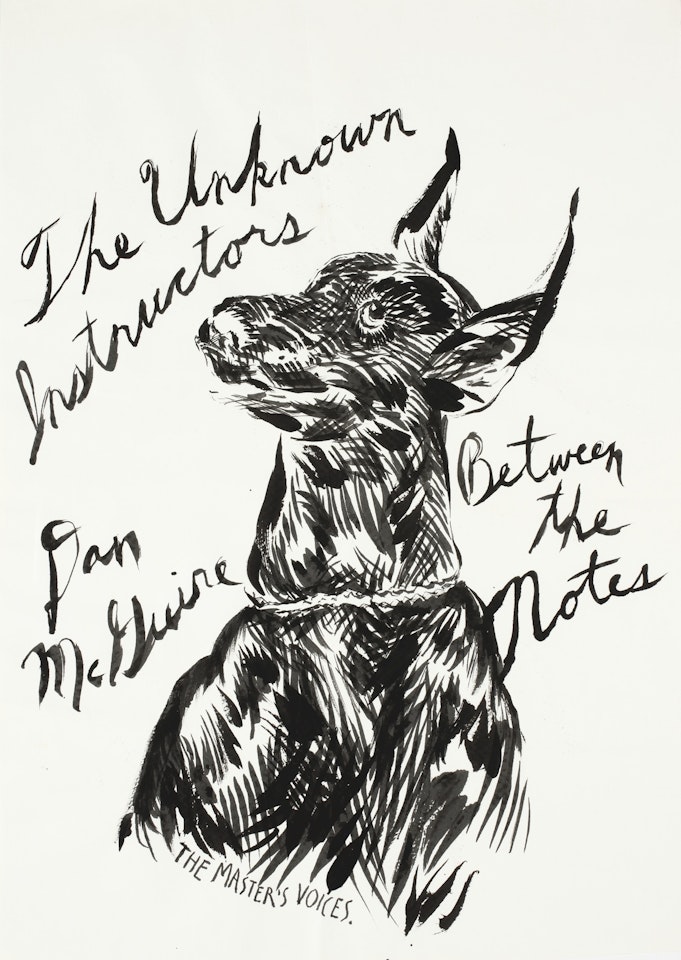 The Unknown
Instructors
Between
the
Notes
Dan
McGuire
THE MASTER'S VOICES.